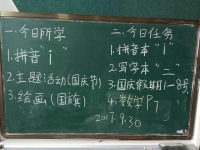 一.今日所学
1.拼音“i”
2.主题活动(国庆节)
3.绘画(国旗)
二.今日任务
1.拼音本“i”
2.写字本“二”
3.国庆假期1—8号
4.数学P7
2017.9.30